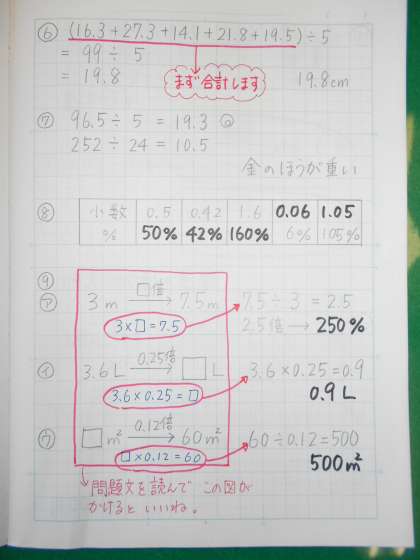 ⑥ (16.3+27.3+14.1+21.8+19.5)÷5
= 99÷5
= 19.8
まず合計します
19.8cm
⑦ 96.5÷5=19.3
252÷24=10.5
金のほうが重い
⑧ 小数 0.5 0.42 1.6 0.06 1.05
% 50% 42% 160% 6% 105%
⑨
㋐ 3m □倍 7.5m 7.5÷3=2.5
3×□=7.5 2.5倍→250%
㋑ 3.6L 0.25倍 □L 3.6×0.25=0.9
3.6×0.25=□ 0.9L
㋒ □m² 0.12倍 60m² 60÷0.12=500
□×0.12=60 500m²
問題文を読んで この図が
かけるといいね。